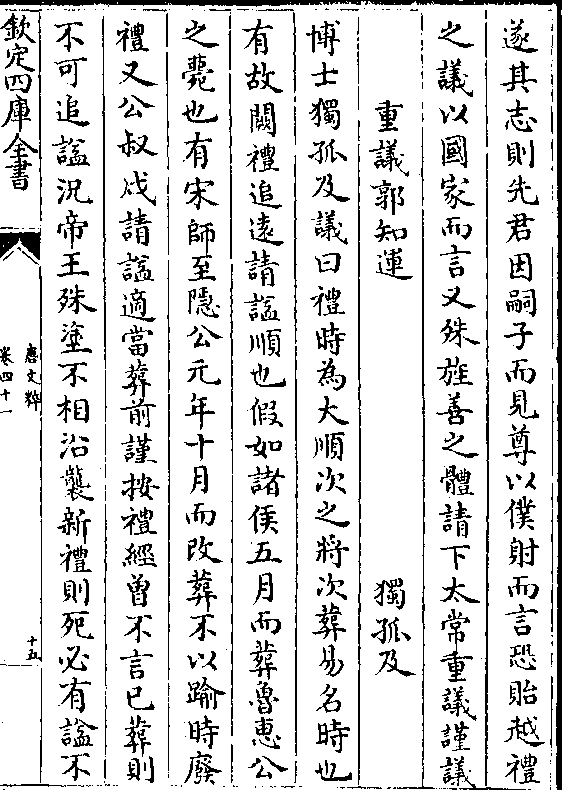 遂其志則先君因嗣子而見尊以僕射而言恐貽越禮
之議以國家而言又殊旌善之體請下太常重議謹議
重議郭知運 獨孤及
博士獨孤及議曰禮時為大順次之將次葬易名時也
有故闕禮追遠請諡順也假如諸侯五月而葬魯惠公
之薨也有宋師至隱公元年十月而改葬不以踰時廢
禮又公叔戍請諡適當葬前謹按禮經曾不言已葬則
不可追諡況帝王殊塗不相沿襲新禮則死必有諡不
欽定四庫全書
唐文粹
卷四十一
十五